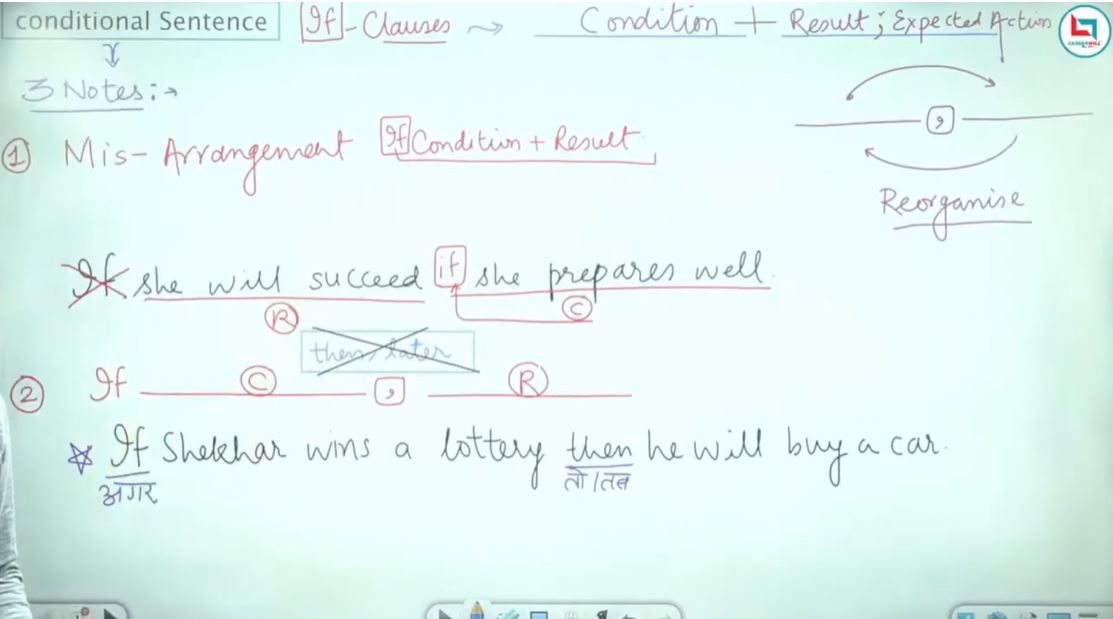 conditional Sentence If - Clauses ~> Condition + Result ; Expected Action
CAREERWILL
3 Notes :→
① Mis-Arrangement If Condition + Result
,
Reorganise
If she will succeed if she prepares well.
R C
then/later
② If C , R
☆ If Shekhar wins a lottery then he will buy a car.
अगर तो/तब